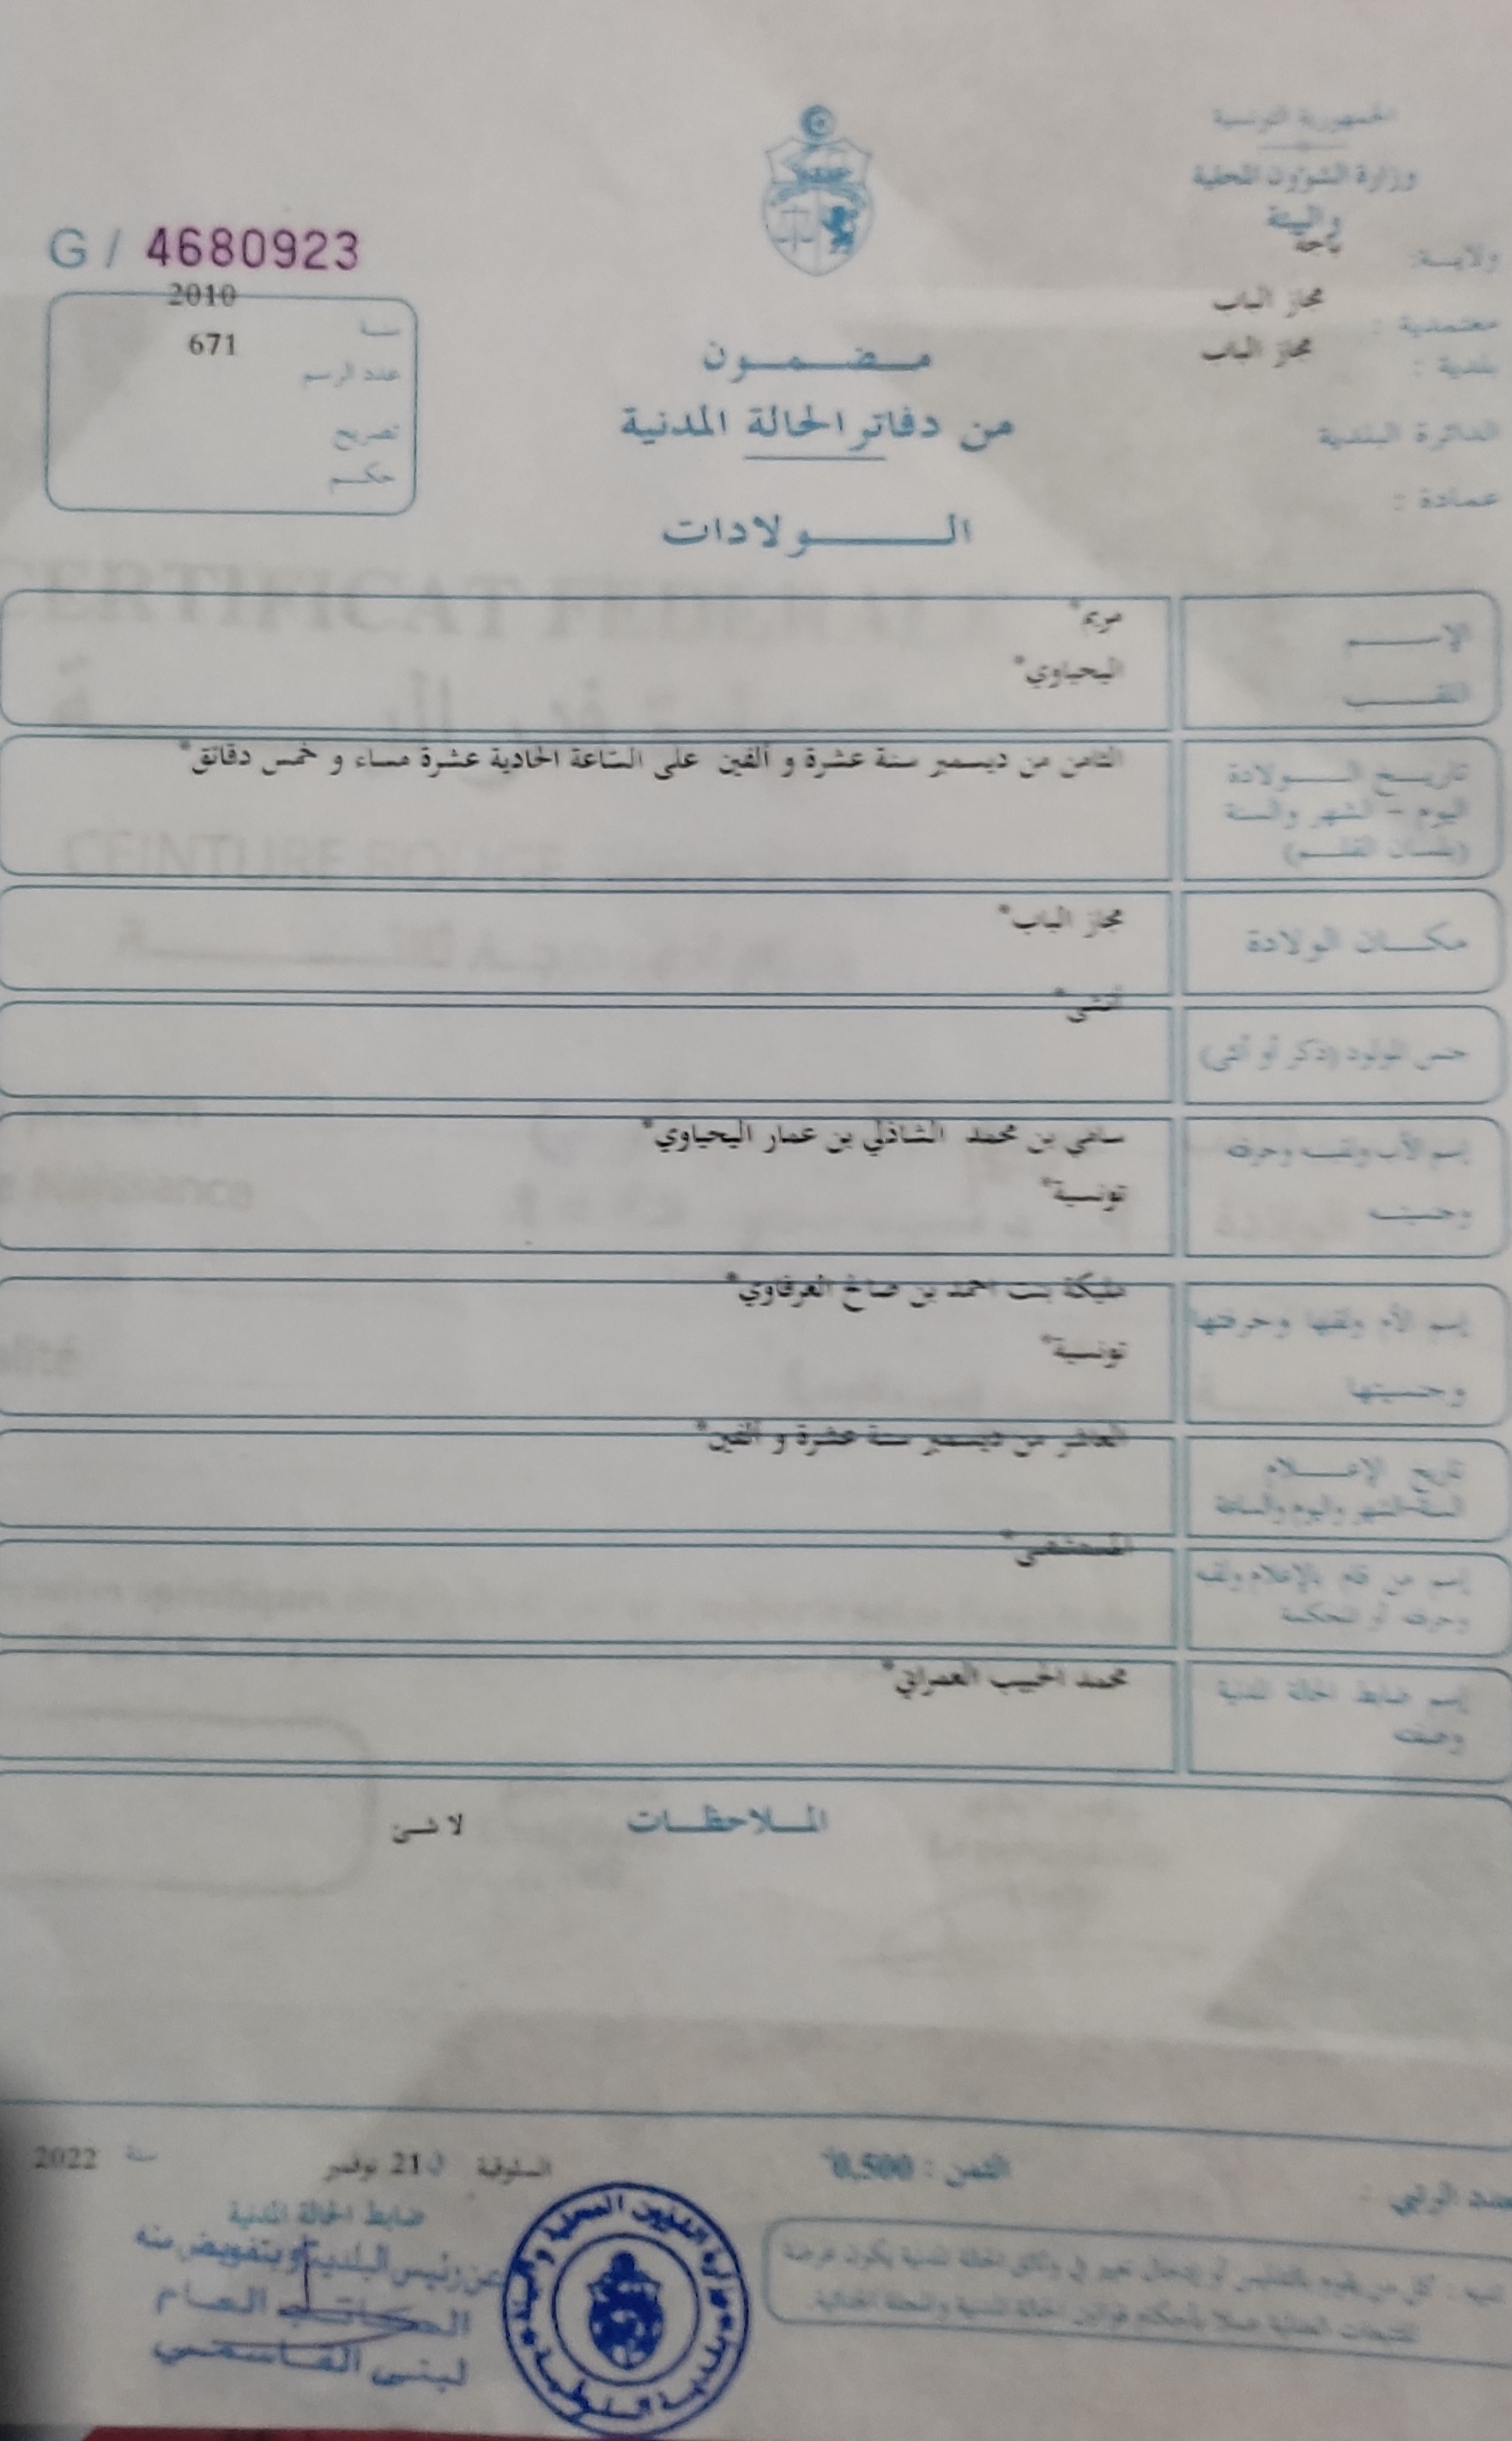 الجمهورية التونسية
وزارة الشؤون المحلية
والبيئة
ولايـة: باجة
معتمدية : مجاز الباب
بلدية : مجاز الباب
الدائرة البلدية
عمادة :
G / 4680923
سنة 2010
عدد الرسم 671
تصريح
حكم
مضمون
من دفاتر الحالة المدنية
الولادات
الإسم مريم*
اللقب اليحياوي*
تاريخ الولادة الثامن من ديسمبر سنة عشرة و ألفين على الساعة الحادية عشرة مساء و خمس دقائق*
اليوم - الشهر والسنة
(بلسان القلم)
مكان الولادة مجاز الباب*
جنس المولود (ذكر أو أنثى) أنثى*
إسم الأب ولقبه وحرفته سامي بن محمد الشاذلي بن عمار اليحياوي*
وجنسيته تونسية*
إسم الأم ولقبها وحرفتها مليكة بنت احمد بن صالح العرفاوي*
وجنسيتها تونسية*
تاريخ الإعلام العاشر من ديسمبر سنة عشرة و ألفين*
السنة والشهر واليوم والساعة
إسم من قام بالإعلام ولقبه المستشفى*
وحرفته أو المحكمة
إسم ضابط الحالة المدنية محمد الحبيب العمراني*
وصفته
الملاحظات لا شئ
الثمن : 0,500
السلوقية في 21 نوفمبر سنة 2022
ضابط الحالة المدنية
عن رئيس البلدية وبتفويض منه
الكاتب العام
لبنى القاسمي
تنبيه : كل من يقوم بالتدليس أو إدخال تغيير في وثائق الحالة المدنية يكون عرضة
للتتبعات العدلية عملا بأحكام قوانين الحالة المدنية والمجلة الجنائية.